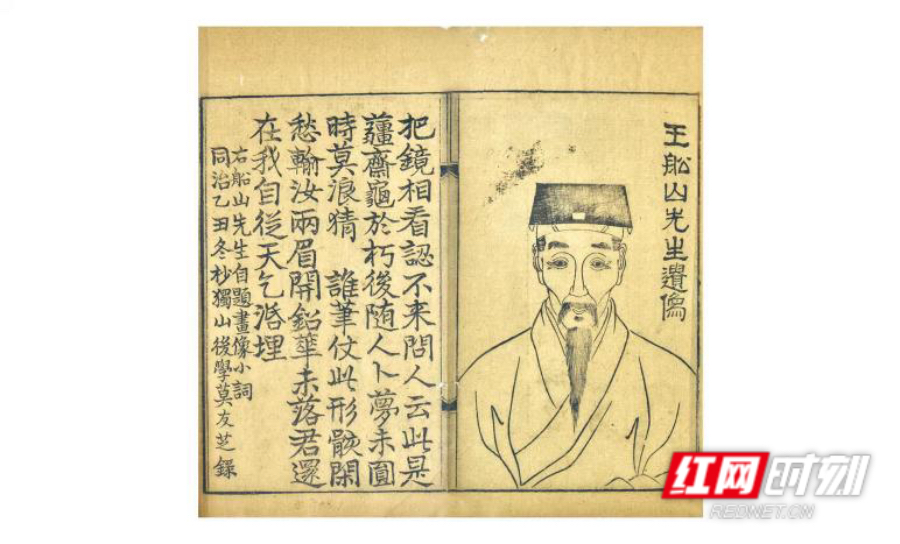 王船山先生遺像
把鏡相看認不来問人云此是
薑齋龜於朽後随人卜夢未圓
時莫浪猜 誰筆仗此形骸閑
愁輸汝兩眉開鉛華未落君還
在我自從天乞活埋
右船山先生自題畫像小詞
同治乙丑冬杪獨山後學莫友芝録
红网时刻
REDNET.CN